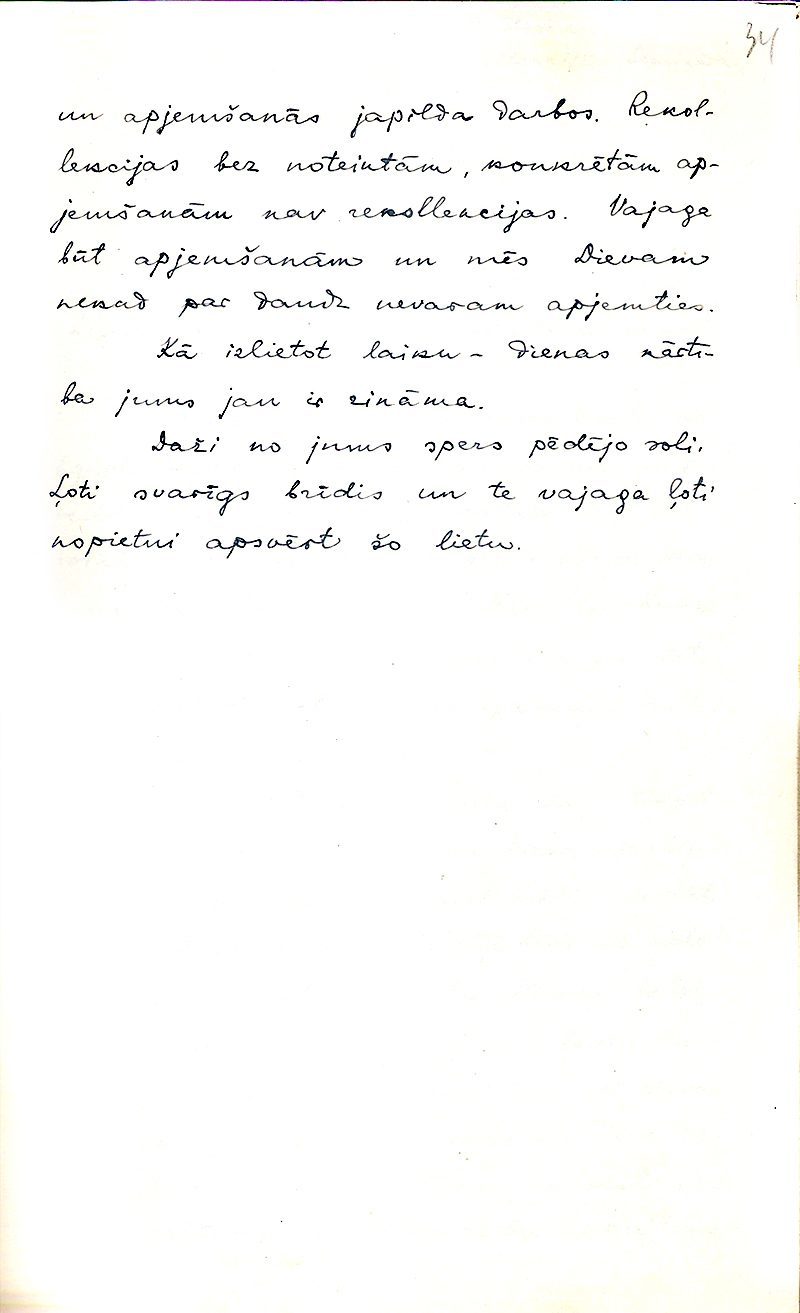 34
un apjemšanās japilda darbos. Rekol-
lekcijas bez noteiktām, konkrētām ap-
jemšanām nav rekollekcijas. Vajaga
būt apjemšanām un mēs Dievam
nekad par daudz nevaram apjemties.
Kā izlietot laiku – dienas kārtī-
ba jums jau ir zināma.
Daži no jums spers pēdējo soli.
Ļoti svarīgs brīdis un te vajaga ļoti
nopietni apsvērt šo lietu.